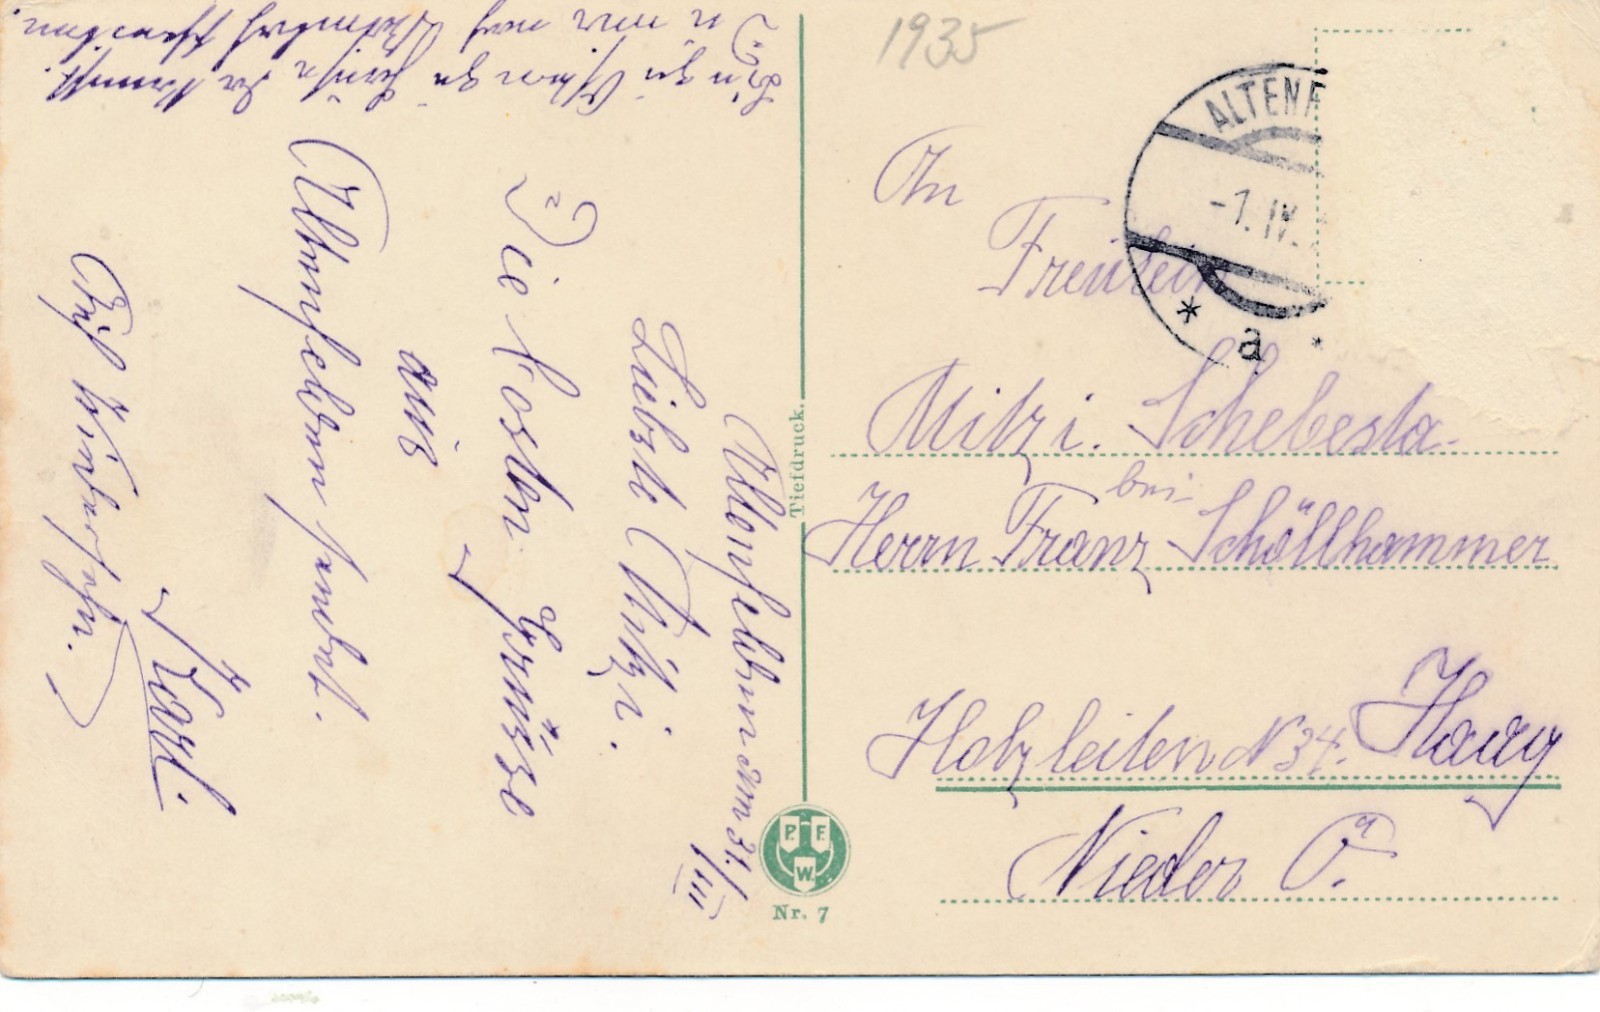 1935
ALTENF
-1. IV.
* a *
An
Freulein
Mitzi. Schebesta
bei
Herrn Franz Schöllhammer
Holzleiten N 34. Haag
Nieder Ö.
Tiefdruck.
P. F. W.
Nr. 7
Altenfelden am 31./III
Liebste Mitzi.
Die besten Grüsse
aus
Altenfelden sendet.
Karl.
Auf Wiedersehn.